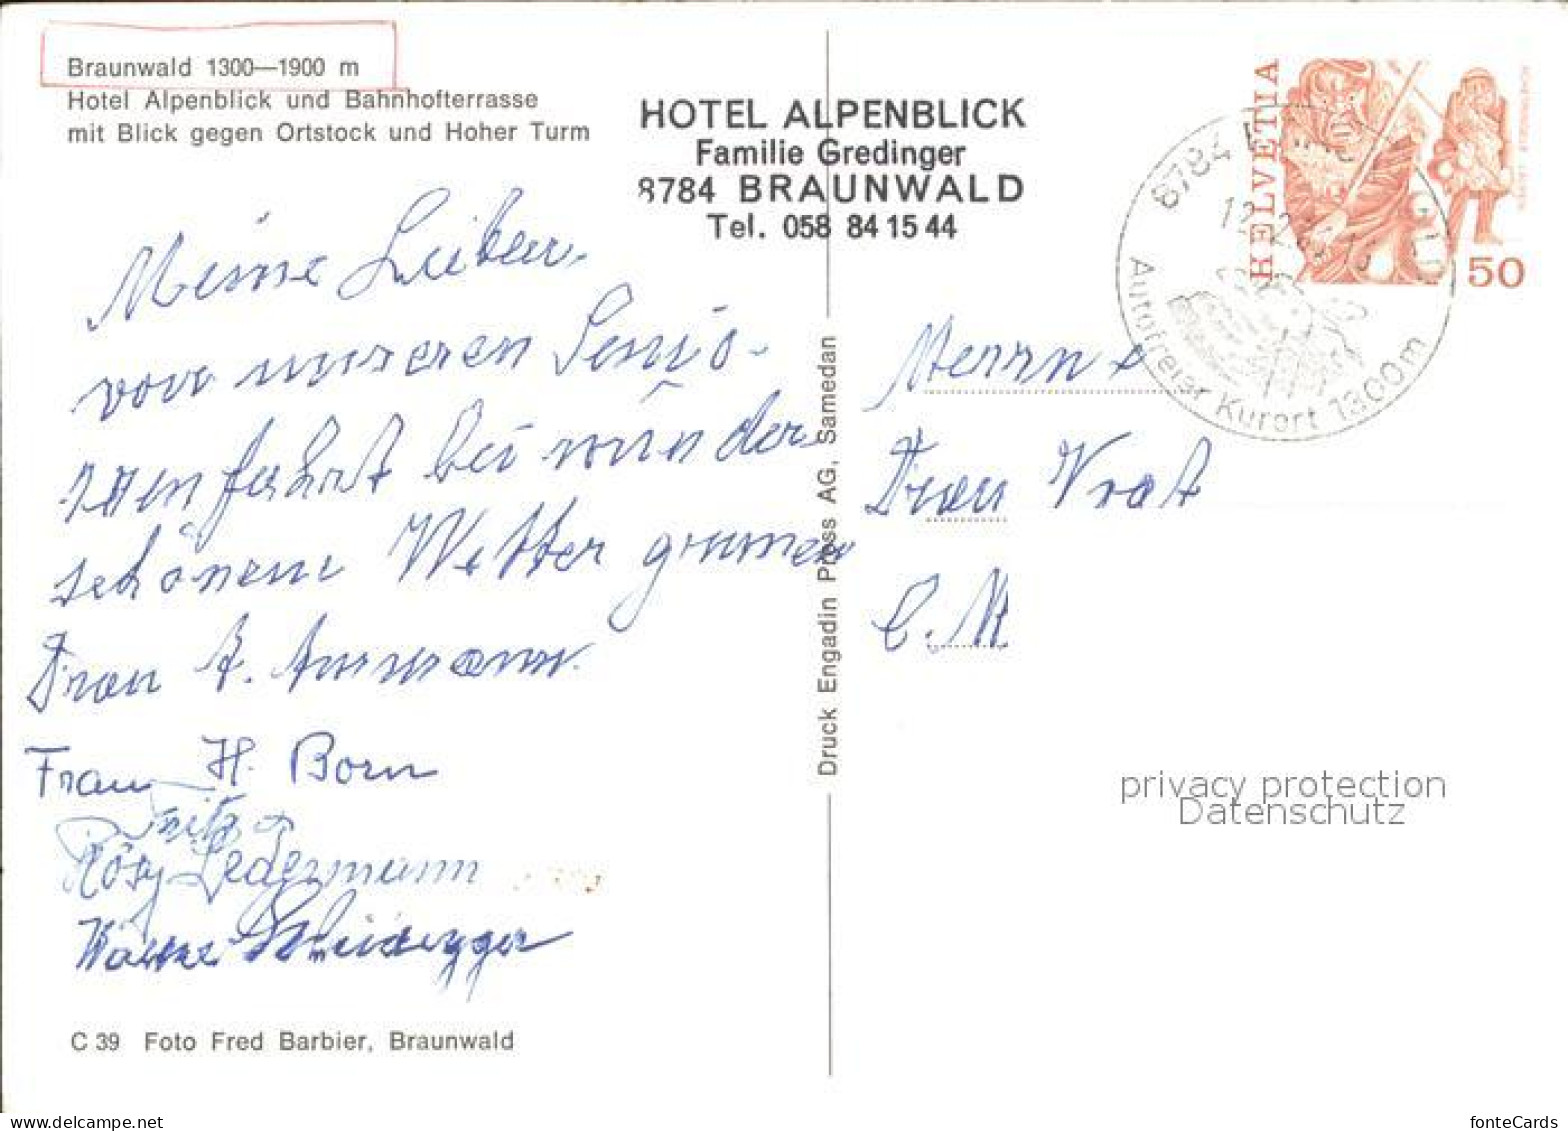 Braunwald 1300—1900 m
Hotel Alpenblick und Bahnhofterrasse
mit Blick gegen Ortstock und Hoher Turm
HOTEL ALPENBLICK
Familie Gredinger
8784 BRAUNWALD
Tel. 058 84 15 44
HELVETIA
50
8784
Autofreier Kurort 1300m
Meine Lieben,
von unseren Senio-
renfahrt bei wunder
schönem Wetter grüssen
Frau A. Ammann.
Frau H. Born
Fritz &
Rösy Ledermann
Scheidegger
C 39 Foto Fred Barbier, Braunwald
Druck Engadin Press AG, Samedan
Herrn &
Frau Vrat
C. M
privacy protection
Datenschutz
www.delcampe.net
fonteCards